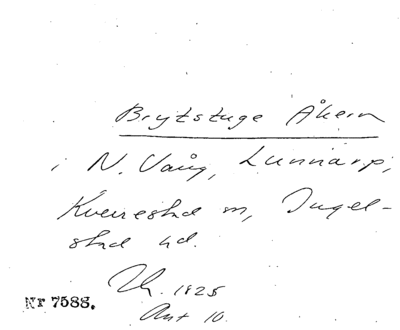 Brytstuge Åkern
i N. Vång, Lunnarp,
Kverrestad sn, Ingel-
stad hd.
1825
Akt 10.
Nr 7588.